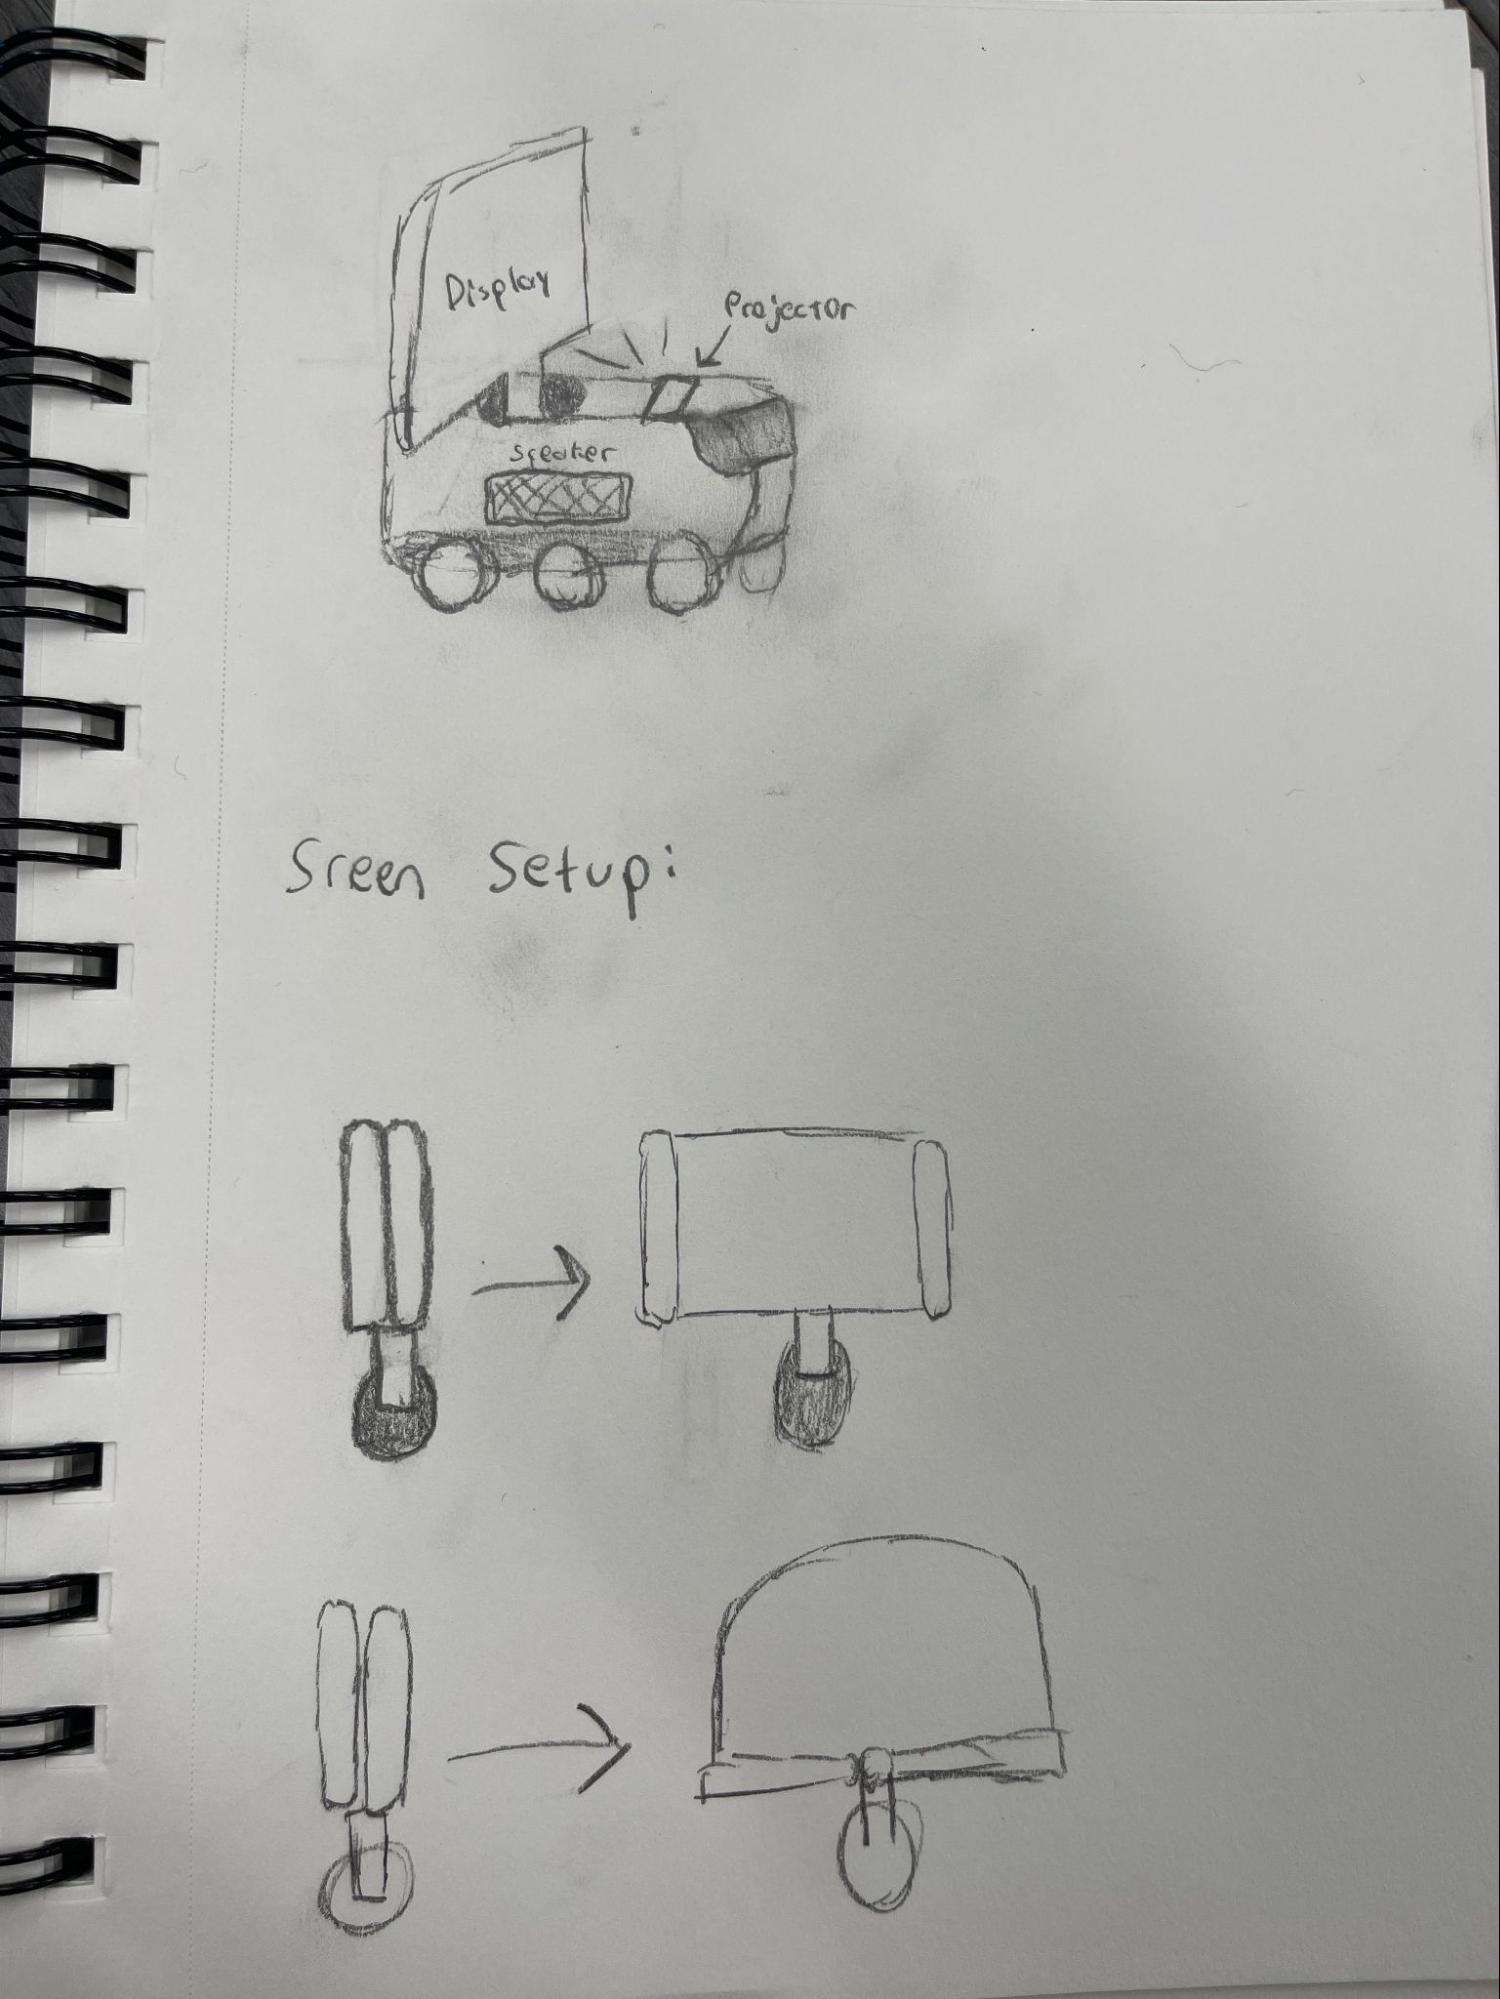 Display
Projector
Speaker
Sreen Setup: